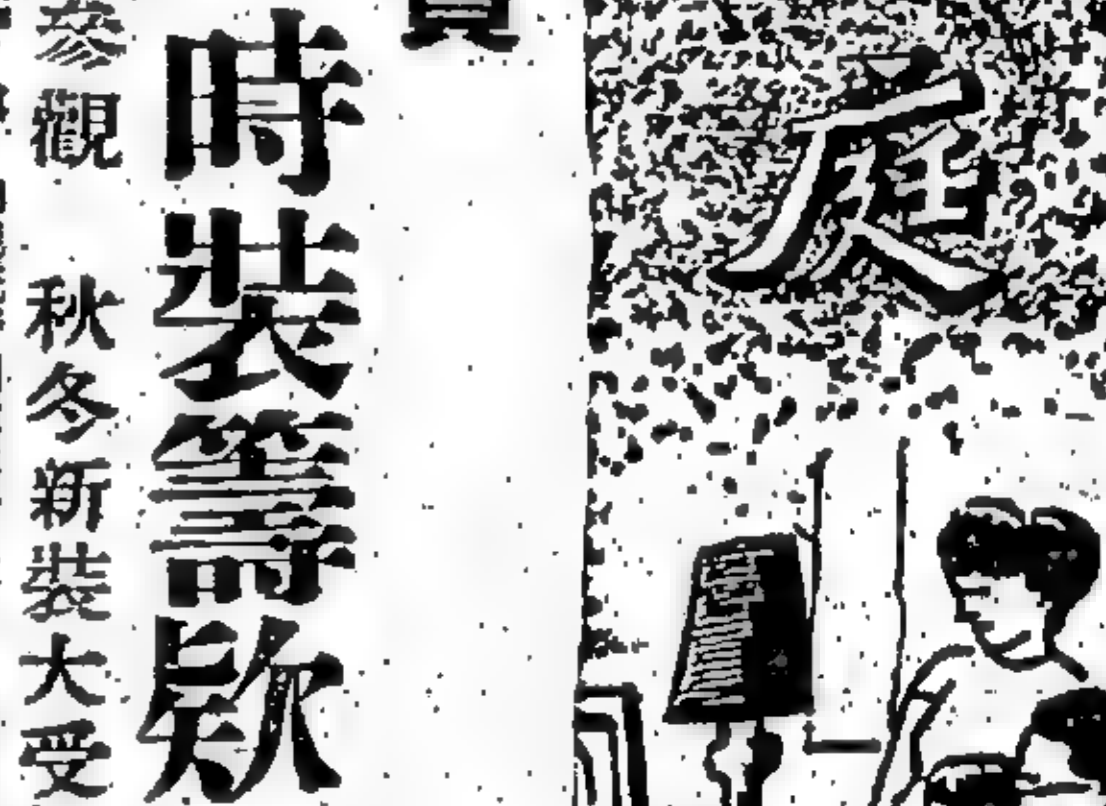 庭
時裝籌欵
參觀 秋冬新裝大受